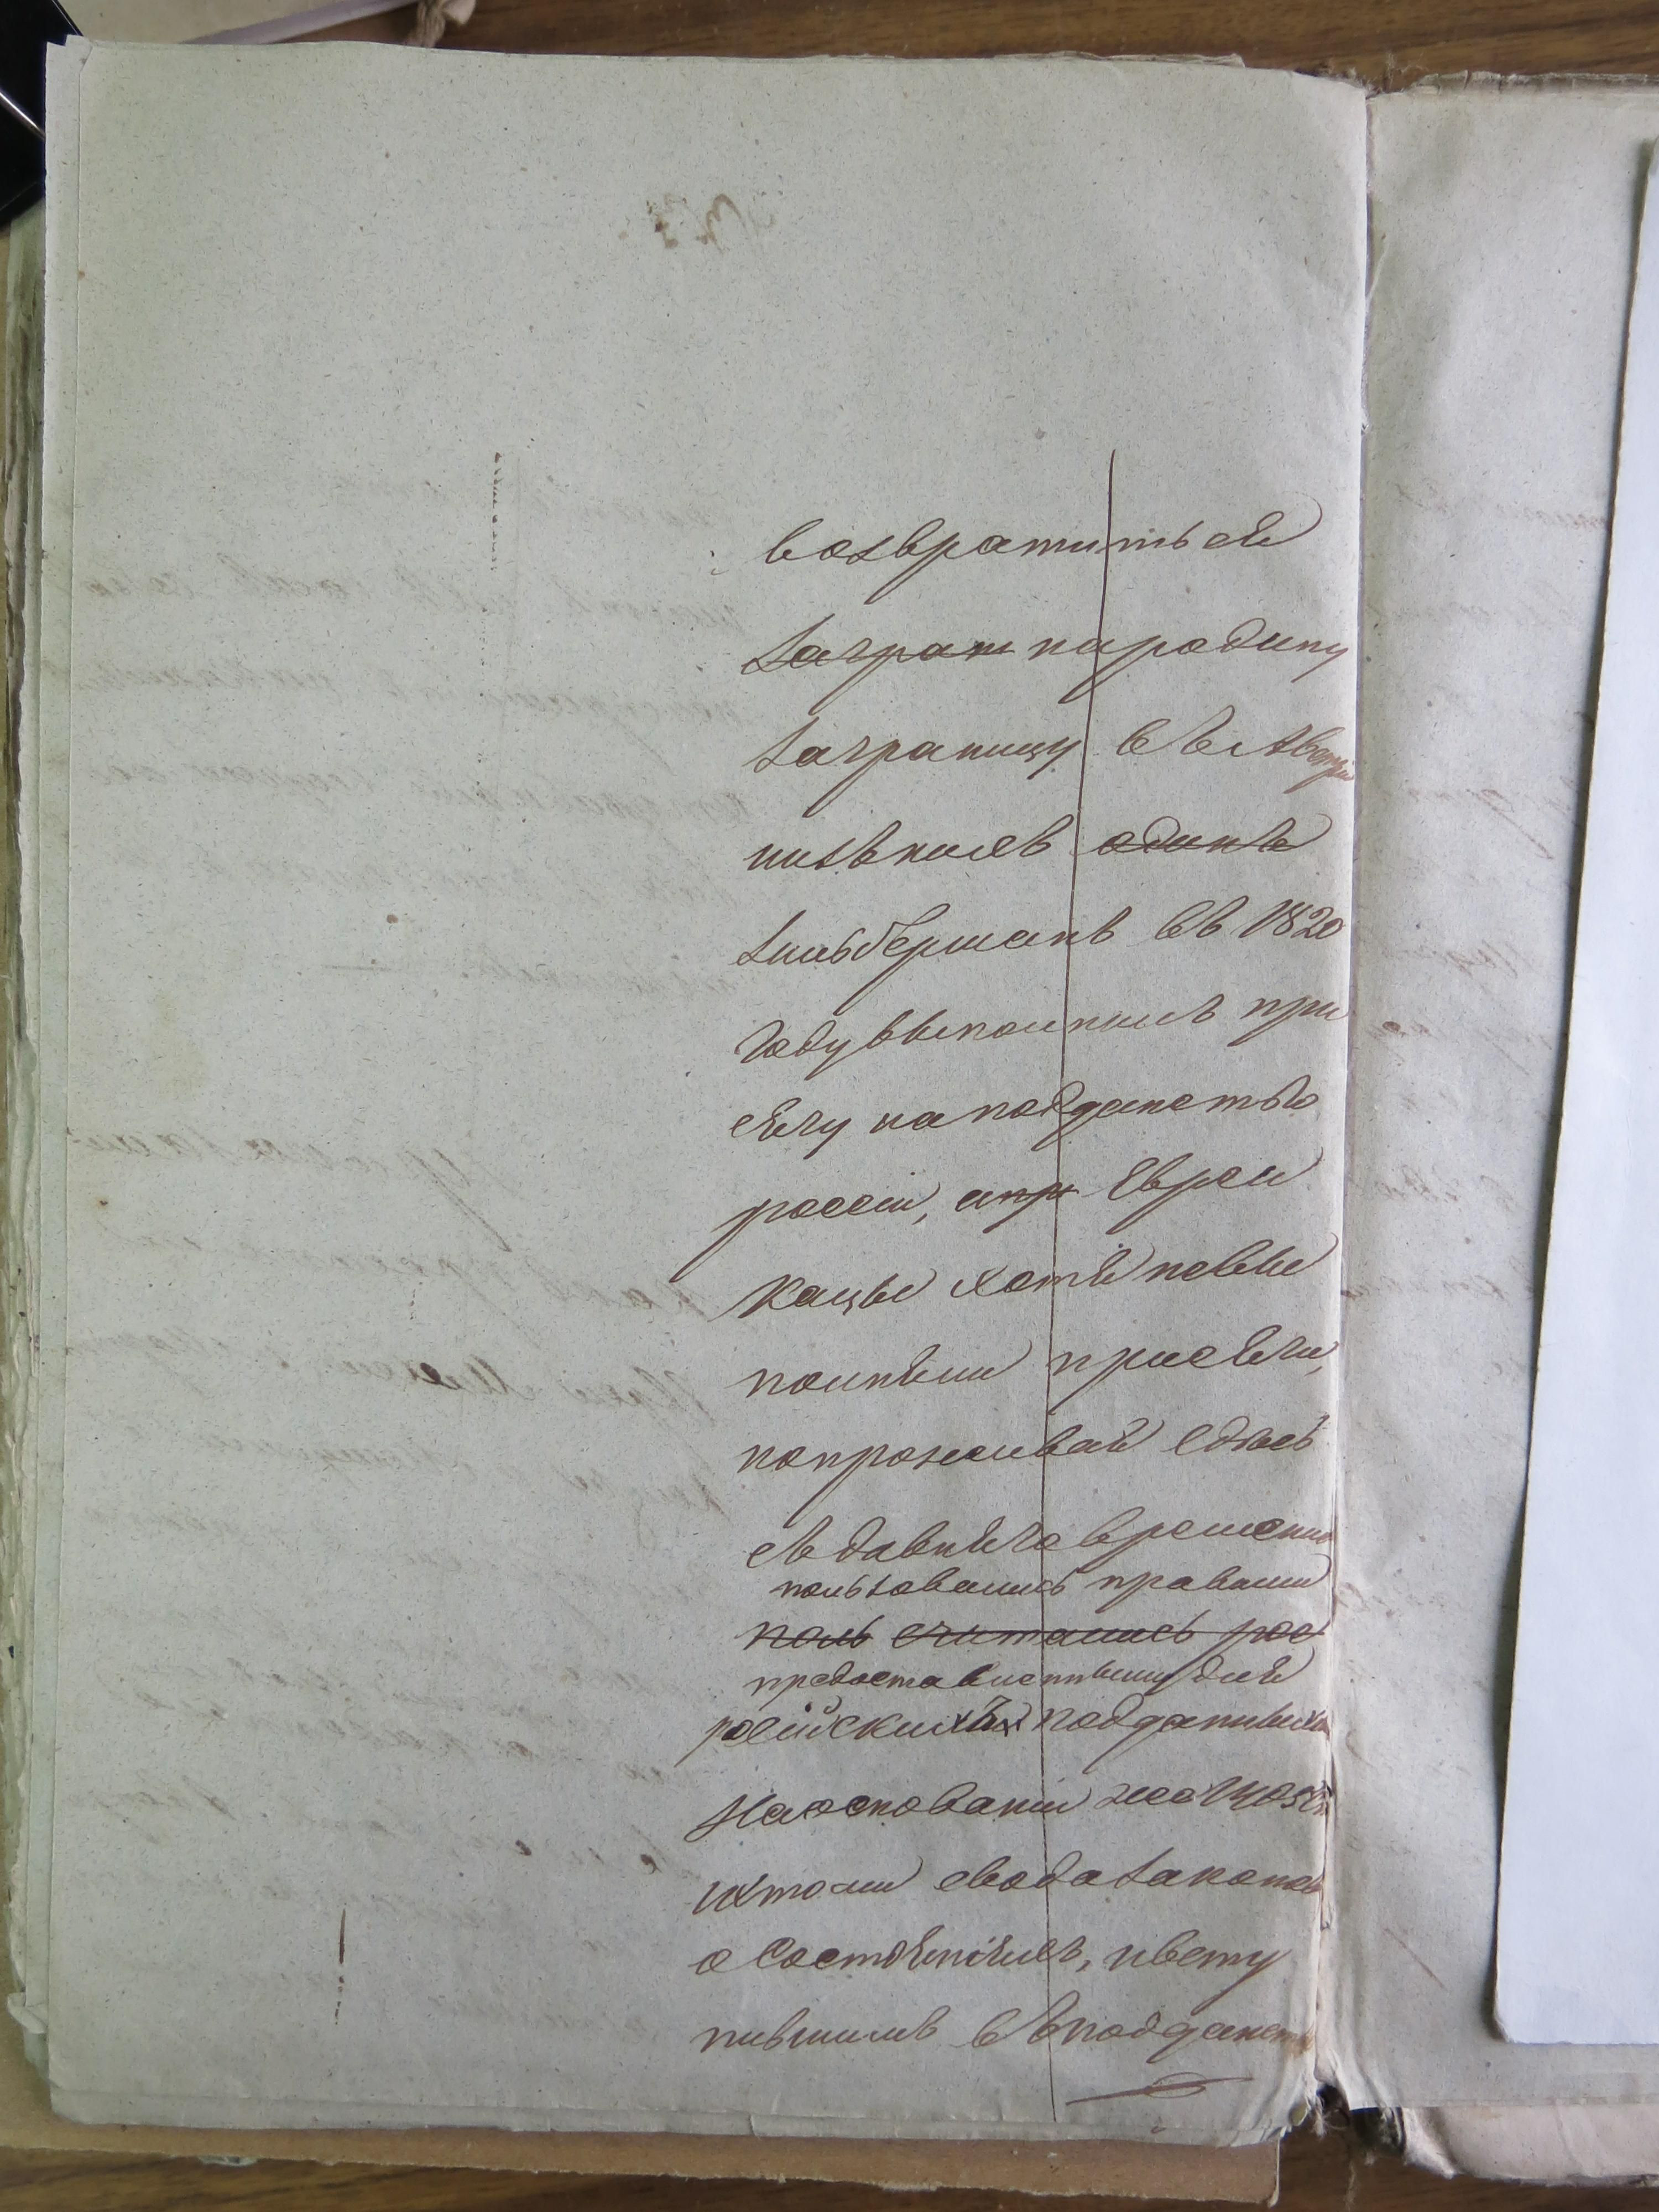 возвратиться
заграни народину
заграницу въ Австрію
изъ нихъ одинъ
Зильберманъ въ 1820
году выполнилъ при
сягу на подданство
россіи, апри Евреи
Кацы хотя невы
полнѣли присяги,
нопроживая сдѣсь
съ давняго времени
пользовались правами
поль считались рос
предоставленными для
россійскихъ подданныхъ
На основаніи же 1405 ст.
IX томи свода законовъ
о Состояніяхъ, невсту
пившихъ въ подданств